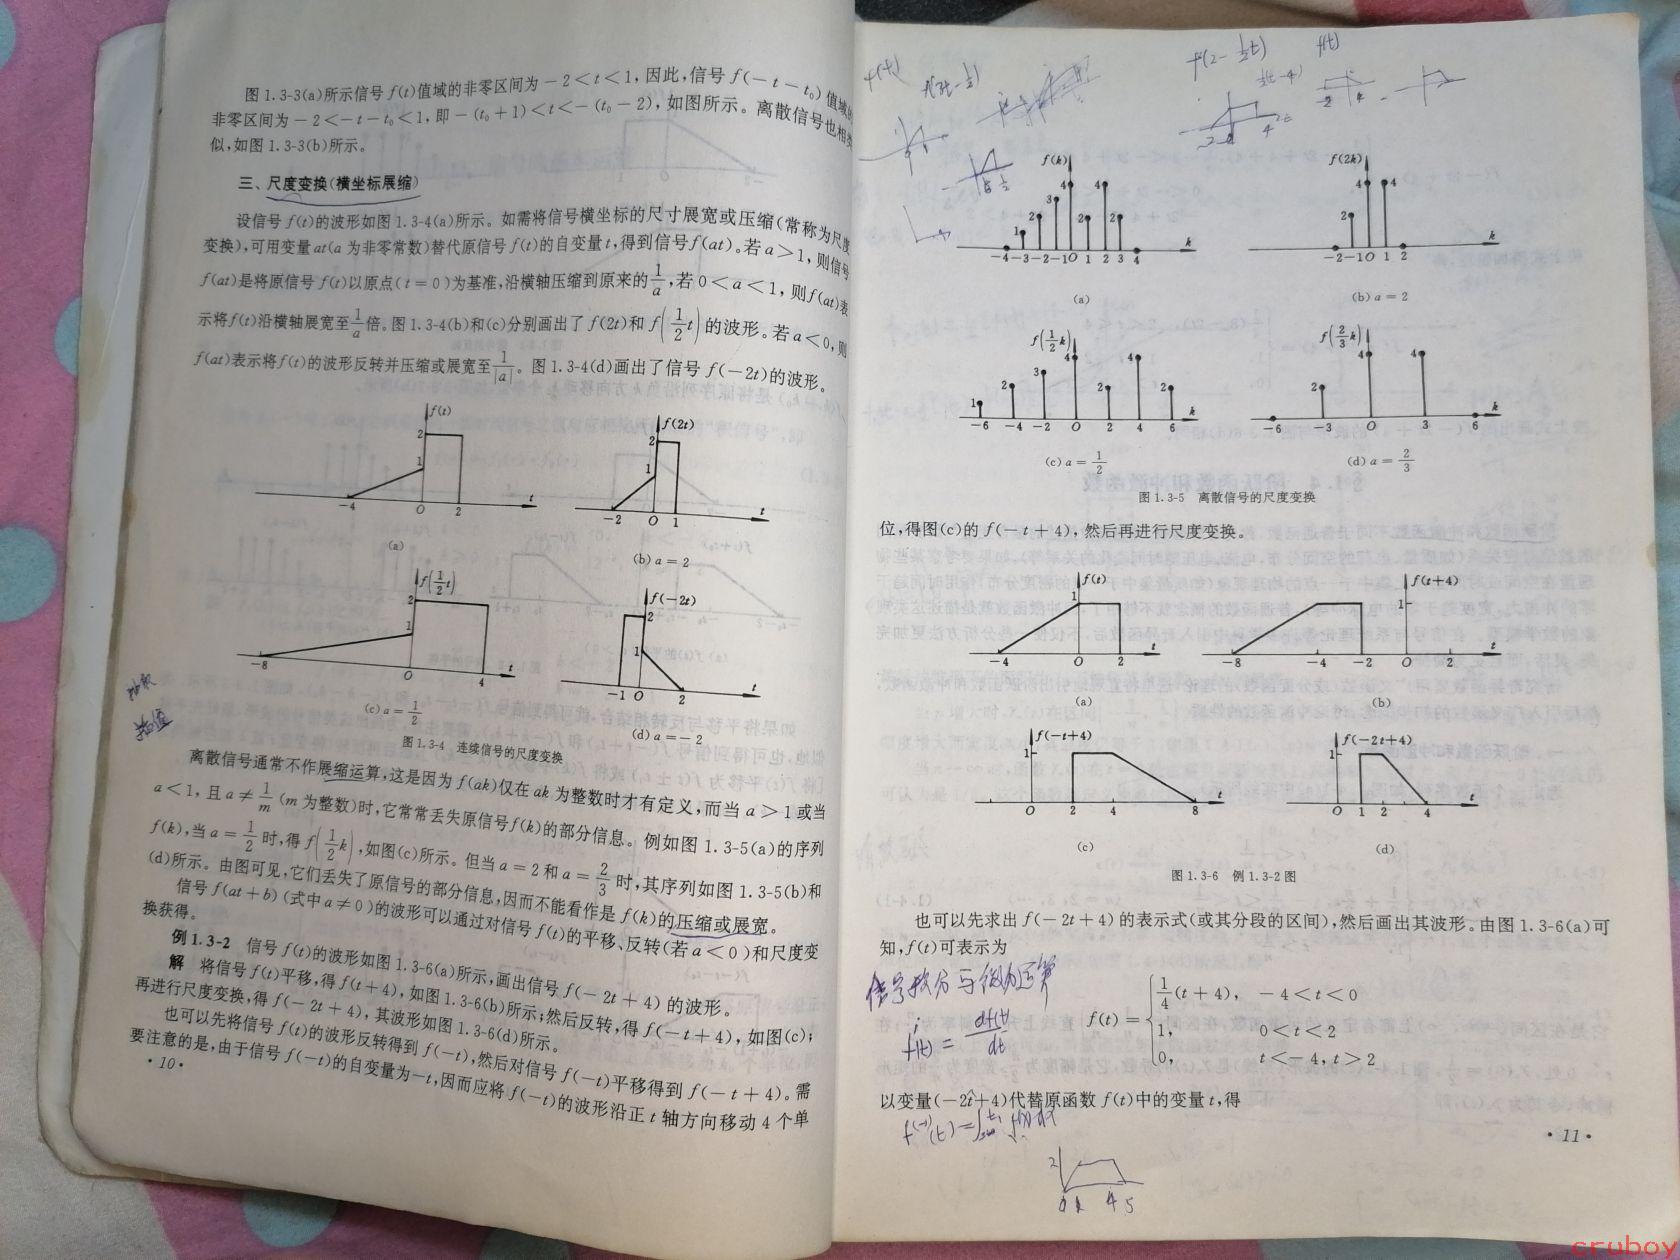 图 1.3-3(a)所示信号 f(t)值域的非零区间为 −2<t<1，因此，信号 f(−t−t₀) 值域的
非零区间为 −2<−t−t₀<1，即 −(t₀+1)<t<−(t₀−2)，如图所示。离散信号也相类
似，如图 1.3-3(b)所示。
三、尺度变换(横坐标展缩)
设信号 f(t)的波形如图 1.3-4(a)所示。如需将信号横坐标的尺寸展宽或压缩(常称为尺度
变换)，可用变量 at(a 为非零常数)替代原信号 f(t)的自变量 t，得到信号 f(at)。若 a>1，则信号
f(at)是将原信号 f(t)以原点(t=0)为基准，沿横轴压缩到原来的 1/a，若 0<a<1，则 f(at)表
示将 f(t)沿横轴展宽至 1/a 倍。图 1.3-4(b)和(c)分别画出了 f(2t)和 f(1/2 t) 的波形。若 a<0，则
f(at)表示将 f(t)的波形反转并压缩或展宽至 1/|a|。图 1.3-4(d)画出了信号 f(−2t)的波形。
f(t)
2
1
−4 O 2 t
(a)
f(2t)
2
1
−2 O 1 t
(b) a=2
f(1/2 t)
2
1
−8 O 4 t
(c) a=1/2
f(−2t)
2
1
−1 O 2 t
(d) a=−2
图 1.3-4 连续信号的尺度变换
抽取
插值
离散信号通常不作展缩运算，这是因为 f(ak)仅在 ak 为整数时才有定义，而当 a>1 或当
a<1，且 a≠1/m (m 为整数)时，它常常丢失原信号 f(k)的部分信息。例如图 1.3-5(a)的序列
f(k)，当 a=1/2 时，得 f(1/2 k)，如图(c)所示。但当 a=2 和 a=2/3 时，其序列如图 1.3-5(b)和
(d)所示。由图可见，它们丢失了原信号的部分信息，因而不能看作是 f(k)的压缩或展宽。
信号 f(at+b) (式中 a≠0)的波形可以通过对信号 f(t)的平移、反转(若 a<0)和尺度变
换获得。
例 1.3-2 信号 f(t)的波形如图 1.3-6(a)所示，画出信号 f(−2t+4) 的波形。
解 将信号 f(t)平移，得 f(t+4)，如图 1.3-6(b)所示；然后反转，得 f(−t+4)，如图(c)；
再进行尺度变换，得 f(−2t+4)，其波形如图 1.3-6(d)所示。
也可以先将信号 f(t)的波形反转得到 f(−t)，然后对信号 f(−t)平移得到 f(−t+4)。需
要注意的是，由于信号 f(−t)的自变量为−t，因而应将 f(−t)的波形沿正 t 轴方向移动 4 个单
·10·
f(t)
f(2−1/2 t)
f(t)
f(k)
4 4
3
2 2 2
1
−4 −3 −2 −1 O 1 2 3 4 k
(a)
f(2k)
4 4
2
−2 −1 O 1 2 k
(b) a=2
f(1/2 k)
4 4
3
2 2 2
1
−6 −4 −2 O 2 4 6 k
(c) a=1/2
f(2/3 k)
4 4
2
−6 −3 O 3 6 k
(d) a=2/3
图 1.3-5 离散信号的尺度变换
位，得图(c)的 f(−t+4)，然后再进行尺度变换。
f(t)
1
−4 O 2 t
(a)
f(t+4)
1
−8 −4 −2 O 2 t
(b)
f(−t+4)
1
O 2 4 8 t
(c)
f(−2t+4)
1
O 1 2 4 t
(d)
图 1.3-6 例 1.3-2 图
也可以先求出 f(−2t+4) 的表示式(或其分段的区间)，然后画出其波形。由图 1.3-6(a)可
知，f(t)可表示为
信号积分与微分运算
f(t) = df(t)/dt
f(t) =
1/4(t+4)， −4<t<0
1， 0<t<2
0， t<−4，t>2
以变量(−2t+4)代替原函数 f(t)中的变量 t，得
·11·
2
4 5
cruboy